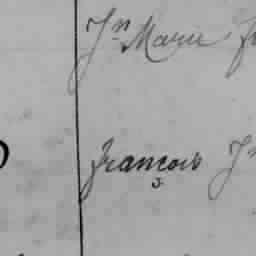 Jn Marie
françois Jn